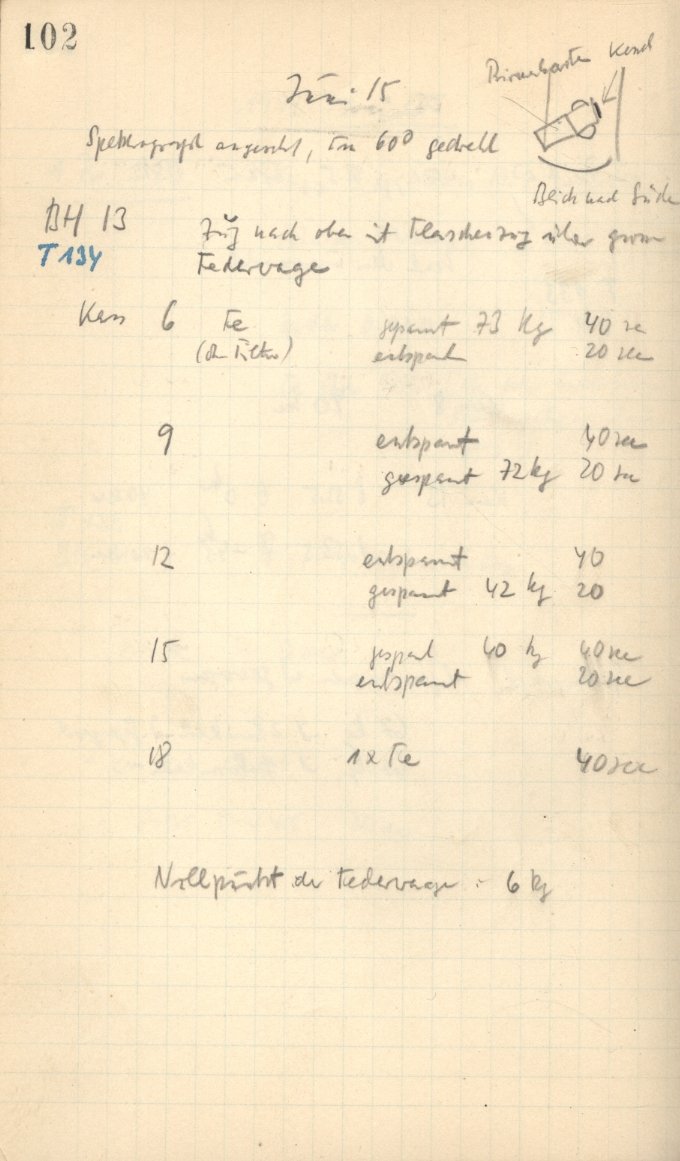 102
Juni 15
Kond
Spektrograph angesetzt, um 60° gedreht
Blick nach Süden
BH 13 Zug nach oben mit Flaschenzug über grosse
T134 Federwage
Kass 6 Fe gespannt 73 kg 40 sec
(ohne Filter) entspannt 20 sec
9 entspannt 40 sec
gespannt 72 kg 20 sec
12 entspannt 40
gespannt 42 kg 20
15 gespannt 40 kg 40 sec
entspannt 20 sec
18 1x Fe 40 sec
Nullpunkt der Federwage : 6 kg